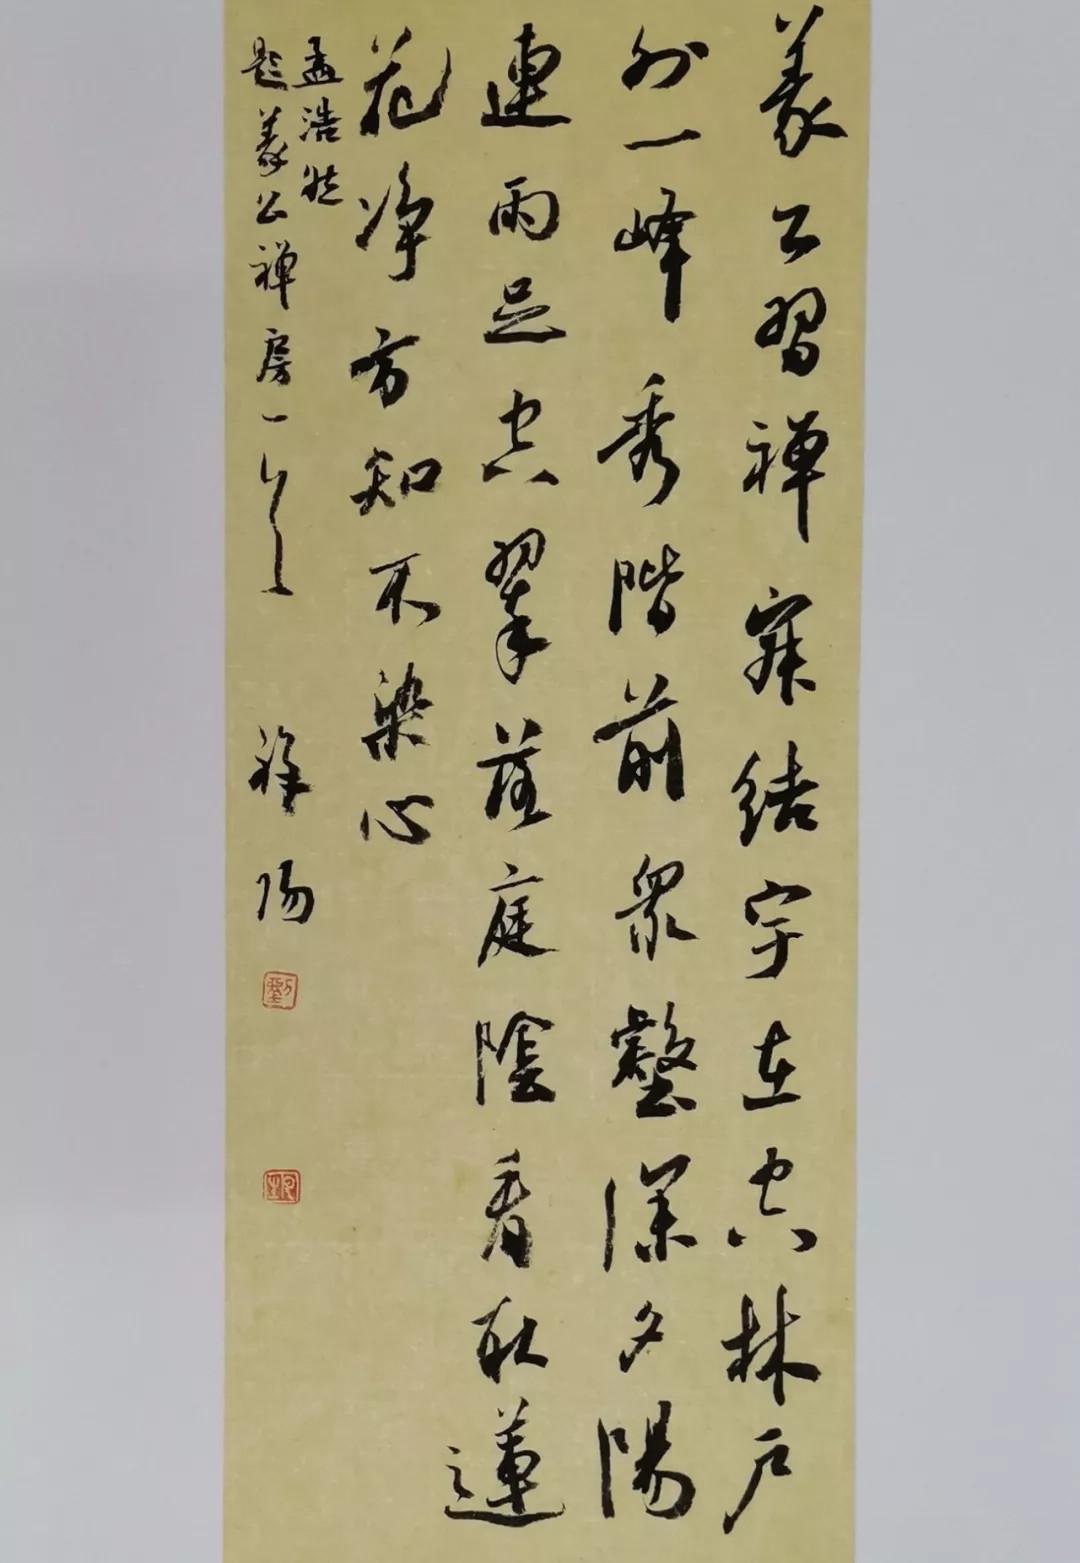 義公習禪寂結宇在空林户
外一峰秀階前衆壑深夕陽
連雨足空翠落庭陰看取蓮
花净方知不染心
孟浩然
題義公禅房一首
祥陽